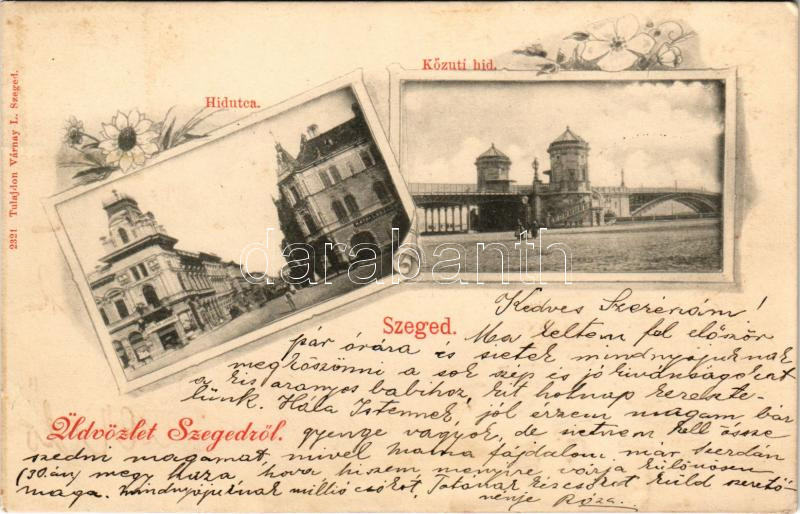 2321 Tulajdon Várnay L. Szeged.
Hidutca.
Közuti hid.
darabanth
Szeged.
Üdvözlet Szegedről.
Kedves Szerénám!
Ma keltem fel először
pár órára és sietek mindnyájuknak
megköszönni a sok szép és jókivánságokat
a kis aranyos babihoz, kit holnap kereszte-
lünk. Hála Istennek, jól érzem magam bár
gyenge vagyok, de sietnem kell össze
szedni magamat mivel mama fájdalom már szerdán
(30.án) megy haza, hova hiszem mennyire várja különösen
maga. Mindnyájuknak millió csókot, kézcsókot küld szerető
nénje Róza.